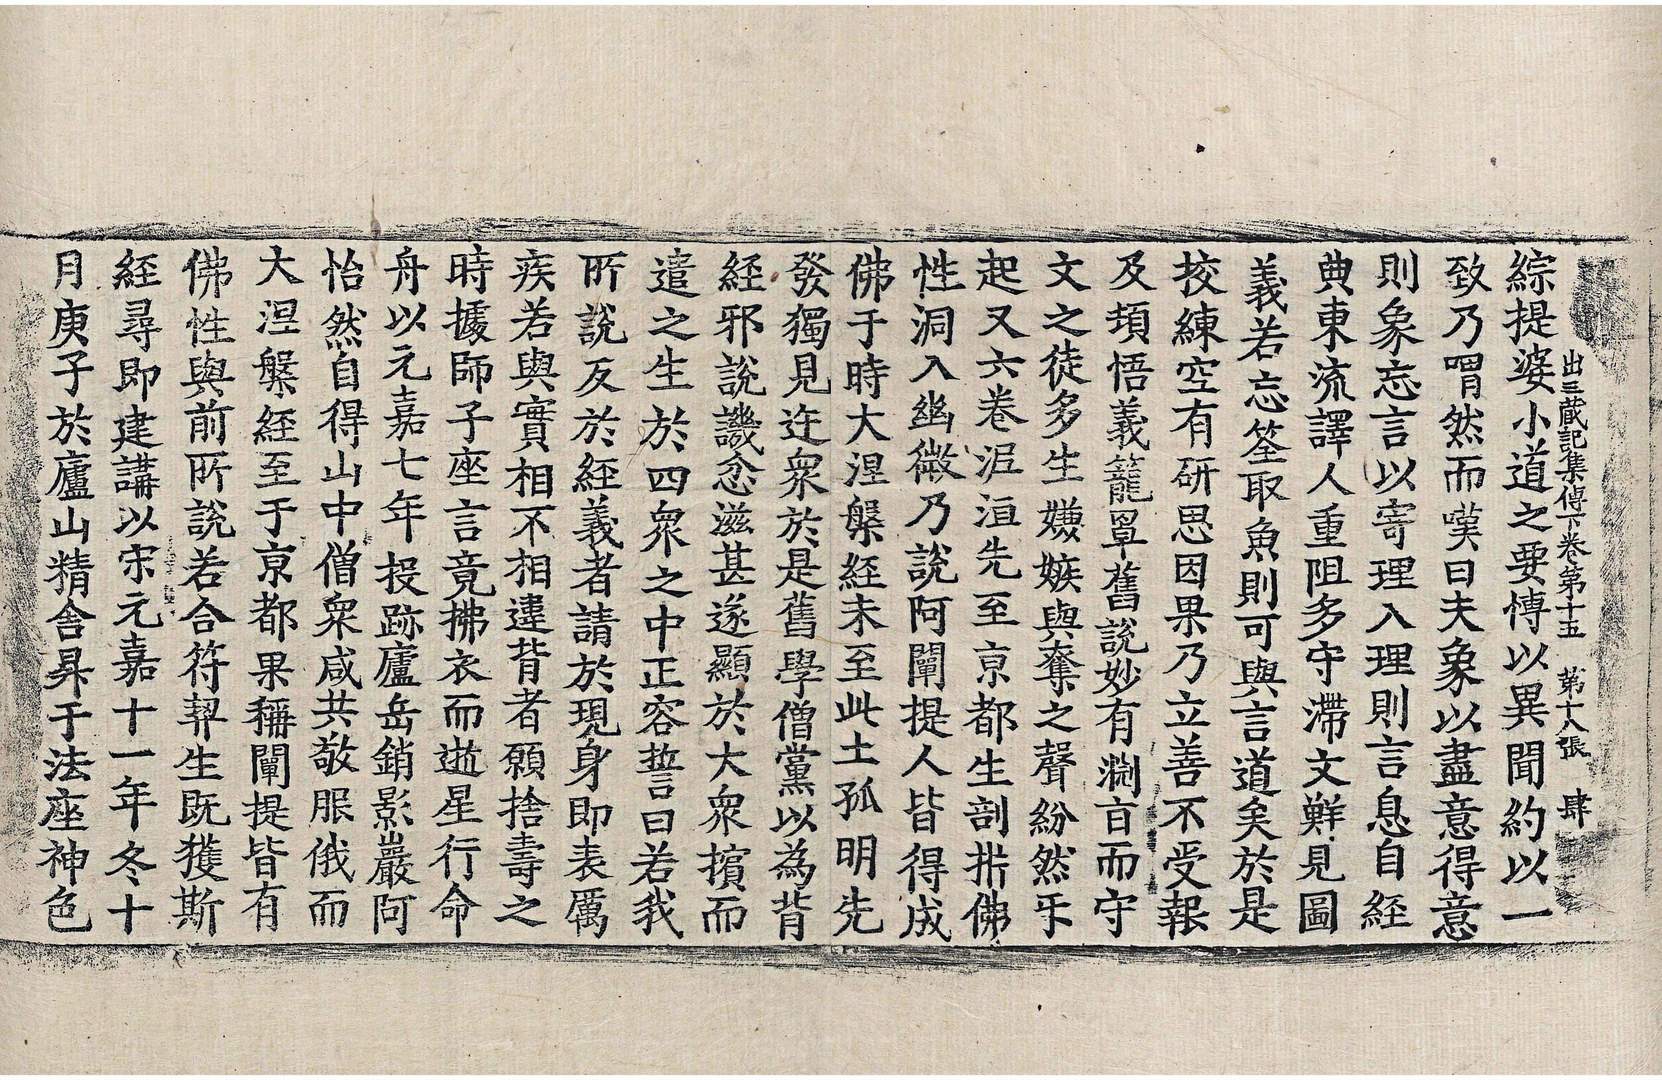 出三蔵記集傳下卷第十五 第十八張 肆
綜提婆小道之要愽以異聞約以一
致乃喟然而嘆曰夫象以盡意得意
則象忘言以寄理入理則言息自經
典東流譯人重阻多守滯文鮮見圓
義若忘筌取魚則可與言道矣於是
挍練空有研思因果乃立善不受報
及頓悟義籠罩舊說妙有淵旨而守
文之徒多生嫌嫉與奪之聲紛然乎
起又六卷泥洹先至京都生剖析佛
性洞入幽微乃說阿闡提人皆得成
佛于時大涅槃經未至此土孤明先
發獨見迕衆於是舊學僧黨以為背
經邪說譏忿滋甚遂顯於大衆擯而
遣之生於四衆之中正容誓曰若我
所說反於經義者請於現身即表厲
疾若與實相不相違背者願捨壽之
時據師子座言竟拂衣而逝星行命
舟以元嘉七年投跡廬岳銷影巖阿
怡然自得山中僧衆咸共敬服俄而
大涅槃經至于京都果稱闡提皆有
佛性與前所說若合符契生既獲斯
經尋即建講以宋元嘉十一年冬十
月庚子於廬山精舍昇于法座神色